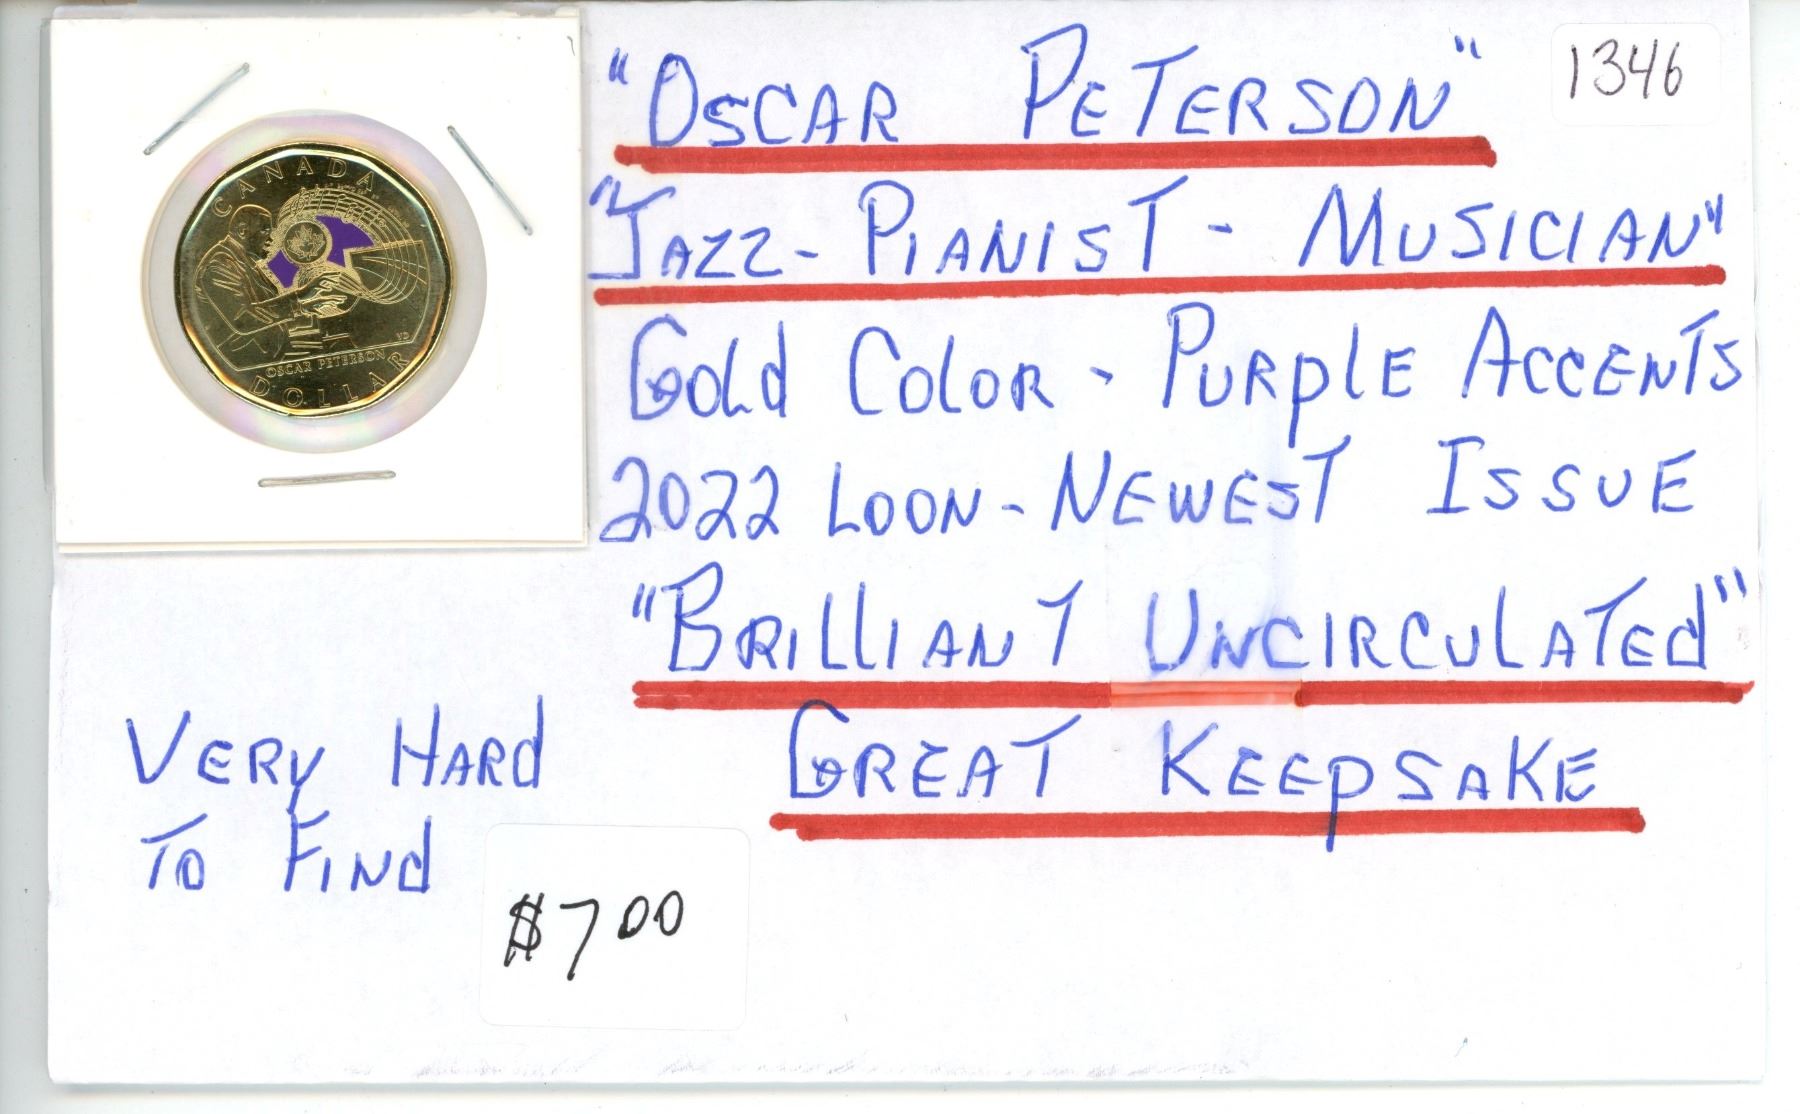 "OSCAR PETERSON"
1346
"JAZZ - PIANIST - MUSICIAN"
GOLD COLOR - PURPLE ACCENTS
2022 LOON - NEWEST ISSUE
"BRILLIANT UNCIRCULATED"
GREAT KEEPSAKE
VERY HARD
TO FIND
$7.00
CANADA
OSCAR PETERSON
VD
DOLLAR